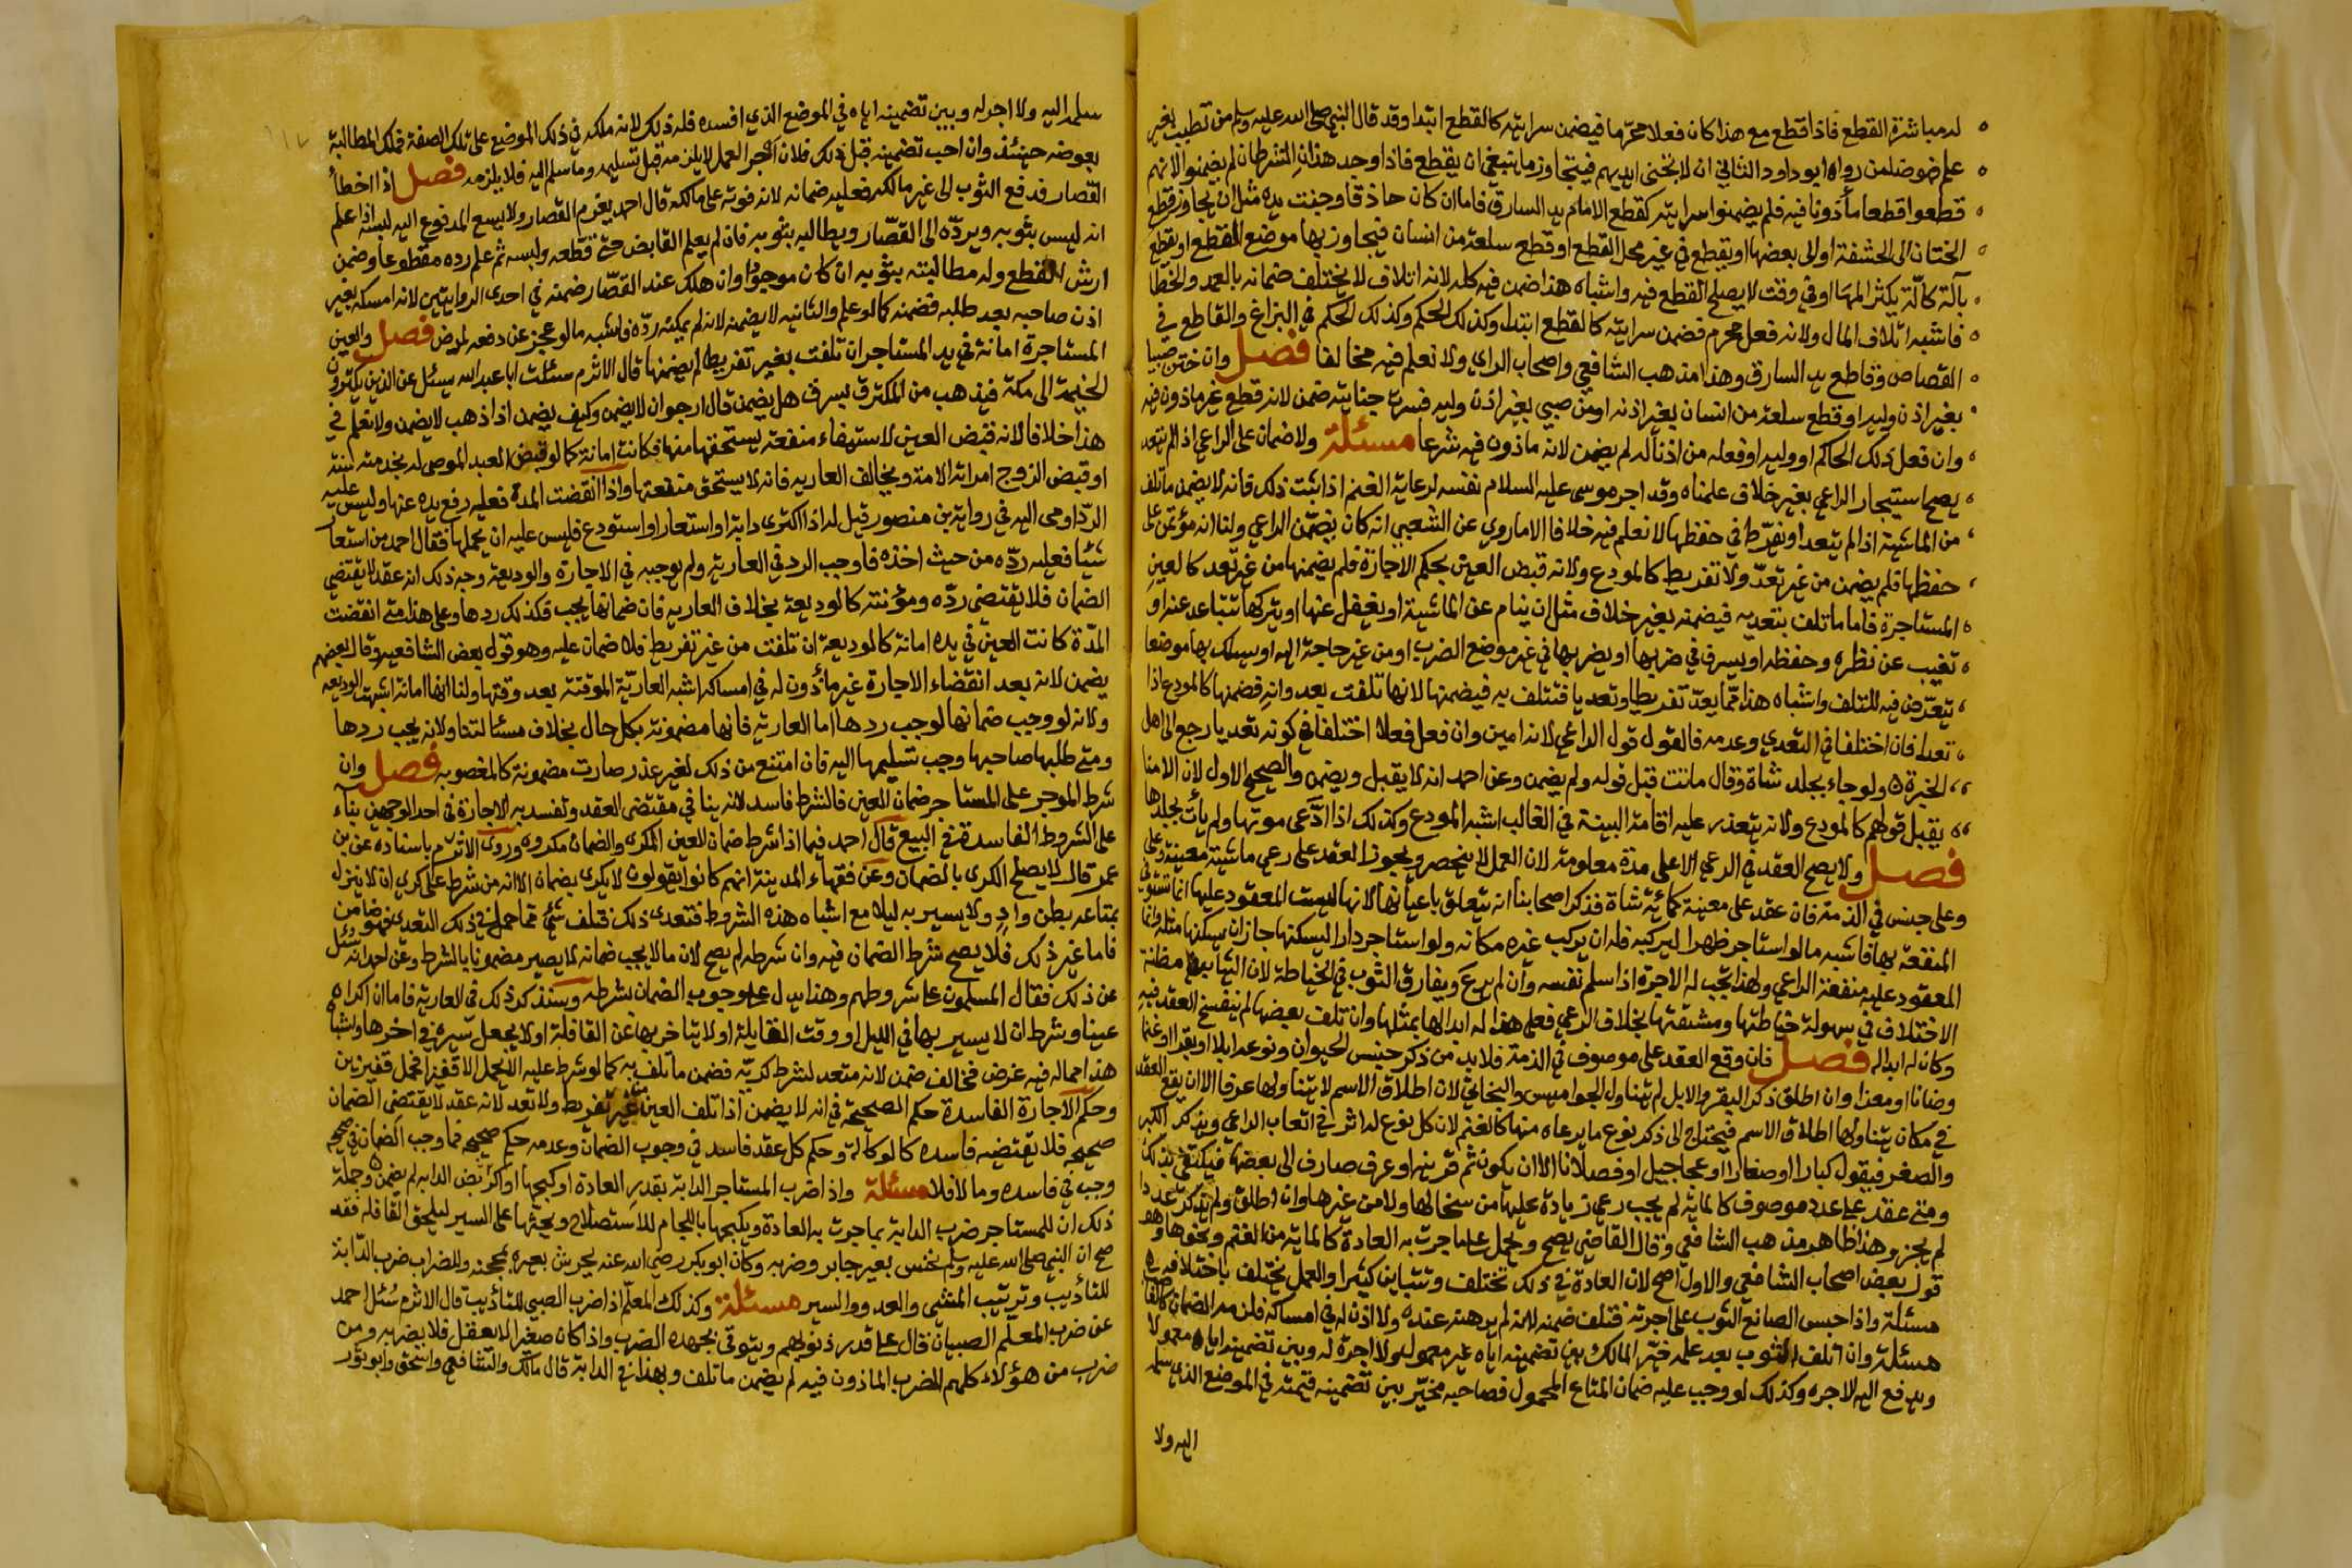 له مباشرة القطع فاذا قطع مع هذا كان فعلا محرما فيضمن سرايته كالقطع ابتدا وقد قال النبي صلى الله عليه وسلم من تطبب بغير
علم فهو ضامن رواه ابو داود الثاني ان لا تجني ايديهم فيتجاوز ما ينبغي ان يقطع فاذا وجد هذان الشرطان لم يضمنوا لانهم
قطعوا قطعا مأذونا فيه فلم يضمنوا سرايته كقطع الامام يد السارق فاما ان كان حاذقا وجنت يده مثل ان يجاوز قطع
الختان الى الحشفة او الى بعضها او يقطع في غير محل القطع او قطع سلعة من انسان فيجاوز بها موضع القطع او يقطع
بآلة كآلّة يكثر المها او في وقت لا يصلح القطع فيه واشباه هذا ضمن فيه كله لانه اتلاف لا يختلف ضمانه بالعمد والخطا
فاشبه اتلاف المال ولانه فعل محرم فضمن سرايته كالقطع ابتدا وكذلك الحكم وكذلك الحكم في البزاغ والقاطع في
القصاص وقاطع يد السارق وهذا مذهب الشافعي واصحاب الراي ولا نعلم فيه مخالفا فصل وان ختن صبيا
بغير اذن وليه او قطع سلعة من انسان بغير اذنه او من صبي بغير اذن وليه فسرت جنايته ضمن لانه قطع غير ماذون فيه
وان فعل ذلك الحاكم او وليه او فعله من اذنا له لم يضمن لانه ماذون فيه شرعا مسئلة ولا ضمان على الراعي اذا لم يتعد
يصح استيجار الراعي بغير خلاف علمناه وقد اجر موسى عليه السلام نفسه لرعاية الغنم اذا ثبت ذلك فانه لا يضمن ما تلف
من الماشية اذا لم يتعد او يفرّط في حفظها لا نعلم فيه خلافا الا ما روي عن الشعبي انه كان يضمّن الراعي ولنا انه مؤتمن على
حفظها فلم يضمن من غير تعدّ ولا تفريط كالمودع ولانه قبض العين بحكم الاجارة فلم يضمنها من غير تعد كالعين
المستاجرة فاما ما تلف بتعديه فيضمنه بغير خلاف مثل ان ينام عن الماشية او يغفل عنها او يتركها تتباعد عنه او
تغيب عن نظره وحفظه او يسرف في ضربها او يضربها في غير موضع الضرب او من غير حاجة اليه او يسلك بها موضعا
يتعرّض فيه للتلف واشباه هذا ممّا يعدّ تفريطا وتعديا فتتلف به فيضمنها لانها تلفت بعدوانه فضمنها كالمودع اذا
تعدا فان اختلفا في التعدي وعدمه فالقول قول الراعي لانه امين وان فعل فعلا اختلفا في كونه تعديا رجع الى اهل
الخبرة ولو جاء بجلد شاة وقال ماتت قبل قوله ولم يضمن وعن احمد انه لا يقبل ويضمن والصحيح الاول لان الامنا
يقبل قولهم كالمودع ولانه يتعذر عليه اقامة البينة في الغالب اشبه المودع وكذلك اذا ادّعى موتها ولم يات بجلدها
فصل ولا يصح العقد في الرعي الا على مدة معلومة لان العمل لا ينحصر ويجوز العقد على رعي ماشية معينة وعلى
وعلى جنس في الذمة فان عقد على معينة كمائة شاة فذكر اصحابنا انه يتعلق باعيانها لانها ليست المعقود عليها انما تستوفى
المنفعة بها فاشبه ما لو استاجر ظهرا ليركبه فله ان يركب غيره مكانه ولو استاجر دارا ليسكنها جاز ان يسكنها مثله وانما
المعقود عليه منفعة الراعي ولهذا تجب له الاجرة اذا سلم نفسه وان لم يرع ويفارق الثوب في الخياطة لان الثياب مظنة
الاختلاف في سهولة خياطتها ومشقتها بخلاف الرعي فعلى هذا له ابدالها بمثلها وان تلف بعضها لم ينفسخ العقد فيه
وكان له ابداله فصل فان وقع العقد على موصوف في الذمة فلا بد من ذكر جنس الحيوان ونوعه ابلا او بقرا او غنما
وضانا او معزا وان اطلق ذكر البقر والابل لم يتناول الجواميس والبخاتي لان اطلاق الاسم لا يتناولها عرفا الا ان يقع العقد
في مكان يتناولها اطلاق الاسم فيحتاج الى ذكر نوع ما يرعاه منها كالغنم لان كل نوع له اثر في اتعاب الراعي ويذكر الكبر
والصغر فيقول كبارا او صغارا او عجاجيل او فصلانا الا ان يكون ثم قرينة او عرف صارف الى بعضها فيكتفى بذلك
ومتى عقد على عدد موصوف كالمائة لم يجب رعي زيادة عليها من سخالها ولا من غيرها وان اطلق ولم يذكر عددا
لم يجز وهذا ظاهر مذهب الشافعي وقال القاضي يصح ويحمل على ما جرت به العادة كالمائة من الغنم ونحوها وهو
قول بعض اصحاب الشافعي والاول اصح لان العادة في ذلك تختلف وتتباين كثيرا والعمل يختلف باختلافه
مسئلة واذا حبس الصانع الثوب على اجرته فتلف ضمنه لانه لم يرهنه عنده ولا اذن له في امساكه فلزمه الضمان كالغاصب
مسئلة وان اتلف الثوب بعد عمله خيّر المالك بين تضمينه اياه غير معمول ولا اجرة له وبين تضمينه اياه معمولا
ويدفع اليه الاجره وكذلك لو وجب عليه ضمان المتاع المحمول فصاحبه مخيّر بين تضمينه قيمته في الموضع الذي سلمه
اليه ولا
سلمه اليه ولا اجر له وبين تضمينه اياه في الموضع الذي افسده فله ذلك لانه ملكه في ذلك الموضع على تلك الصفة فملك المطالبة
بعوضه حينئذ وان احب تضمينه قبل ذلك فلان اجر العمل لا يلزمه قبل تسليمه وما سلم اليه فلا يلزمه فصل اذا اخطأ
القصار فدفع الثوب الى غير مالكه فعليه ضمانه لانه فوته على مالكه قال احمد يغرم القصار ولا يسع المدفوع اليه لبسه اذا علم
انه ليس بثوبه ويردّه الى القصّار ويطالبه بثوبه فان لم يعلم القابض حتى قطعه ولبسه ثم علم رده مقطوعا وضمن
ارش القطع وله مطالبته بثوبه ان كان موجودا وان هلك عند القصّار ضمنه في احدى الروايتين لانه امسكه بغير
اذن صاحبه بعد طلبه فضمنه كما لو علم والثانيه لا يضمنه لانه لم يمكنه ردّه فاشبه ما لو عجز عن دفعه لمرض فصل والعين
المستاجرة امانة في يد المستاجر ان تلفت بغير تفريط لم يضمنها قال الاثرم سئلت ابا عبد الله يسئل عن الذين يكترون
الخيمة الى مكة فيذهب من المكترى بسرق هل يضمن قال ارجو ان لا يضمن وكيف يضمن اذا ذهب لا يضمن ولا نعلم في
هذا خلافا لانه قبض العين لاستيفاء منفعة يستحقها منها فكانت امانة كما لو قبض العبد الموصى له بخدمته سنة
او قبض الزوج امراته الامة ويخالف العاريه فانه لا يستحق منفعتها واذا انقضت المدة فعليه رفع يده عنها وليس عليه
الردّ اومى اليه في رواية بن منصور قيل له اذا اكترى دابة او استعار او استودع فليس عليه ان يحملها فقال احمد من استعار
شيئا فعليه ردّه من حيث اخذه فاوجب الرد في العارية ولم يوجبه في الاجارة والوديعة وجه ذلك انه عقد لا يقتضي
الضمان فلا يقتضي ردّه ومؤنته كالوديعة بخلاف العاريه فان ضمانها يجب فكذلك ردها وعلى هذا متى انقضت
المدّة كانت العين في يده امانة كالوديعة ان تلفت من غير تفريط فلا ضمان عليه وهو قول بعض الشافعيه وقال بعضهم
يضمن لانه بعد انقضاء الاجارة غير مأذون له في امساكها اشبه العاريّة الموقتة بعد وقتها ولنا انها امانة اشبهت الوديعه
ولانه لو وجب ضمانها لوجب ردها اما العارية فانها مضمونة بكل حال بخلاف مسئالتنا ولانه يجب ردها
ومتى طلبها صاحبها وجب تسليمها اليه فان امتنع من ذلك لغير عذر صارت مضمونة كالمغصوبه فصل وان
شرط الموجر على المستاجر ضمان العين فالشرط فاسد لانه ينافي مقتضى العقد وتفسد به الاجارة في احد الوجهين بناء
على الشروط الفاسدة في البيع قال احمد فيما اذا شرط ضمان العين الكرى والضمان مكروه وروى الاثرم باسناده عن بن
عمر قال لا يصلح الكرى بالضمان وعن فقهاء المدينة انهم كانوا يقولون لا يكرى بضمان الا انه من شرط على كري ان لا ينزل
بمتاعه بطن واد ولا يسير به ليلا مع اشباه هذه الشروط فتعدى ذلك فتلف شئ مما حمل في ذلك التعدي فهو ضامن
فاما غير ذلك فلا يصح شرط الضمان فيه وان شرطه لم يصح لان ما لا يجب ضمانه لا يصير مضمونا بالشرط وعن احمد انه سئل
عن ذلك فقال المسلمون على شروطهم وهذا يدل على وجوب الضمان بشرطه وسنذكر ذلك في العارية فاما ان اكراه
عينا وشرط ان لا يسير بها في الليل او وقت القايلة او لا يتاخر بها عن القافلة او لا يجعل سيره في اخرها واشباه
هذا مما له فيه غرض فخالف ضمن لانه متعد لشرط كريّه فضمن ما تلف به كما لو شرط عليه الا يحمل الا قفيزا فحمل قفيزين
وحكم الاجارة الفاسدة حكم الصحيحة في انه لا يضمن اذا تلف العين من غير تفريط ولا تعد لانه عقد لا يقتضي الضمان
صحيحه فلا يقتضيه فاسده كالوكالة وحكم كل عقد فاسد في وجوب الضمان وعدمه حكم صحيحه فما وجب الضمان في صحيحه
وجب في فاسده وما لا فلا مسئلة واذا ضرب المستاجر الدابة بقدر العادة او كبحها او اكراه ركض الدابه لم يضمن وجملة
ذلك ان للمستاجر ضرب الدابة بما جرت به العادة ويكبحها باللجام للاستصلاح ويحثها على السير ليلحق القافله فقد
صح ان النبي صلى الله عليه وسلم نخس بعير جابر وضربه وكان ابو بكر رضي الله عنه يحرش بعيره بمحجنه وللضراب ضرب الدّابة
للتأديب وترتيب المشي والعدو والسير مسئلة وكذلك المعلّم اذا ضرب الصبي للتأديب قال الاثرم سُئل احمد
عن ضرب المعلم الصبيان قال على قدر ذنوبهم ويتوقى بجهده الضرب واذا كان صغيرا لا يعقل فلا يضربه ومن
ضرب من هؤلاء كلهم الضرب الماذون فيه لم يضمن ما تلف وبهذا في الدابة قال مالك والشافعي واسحق وابو ثور